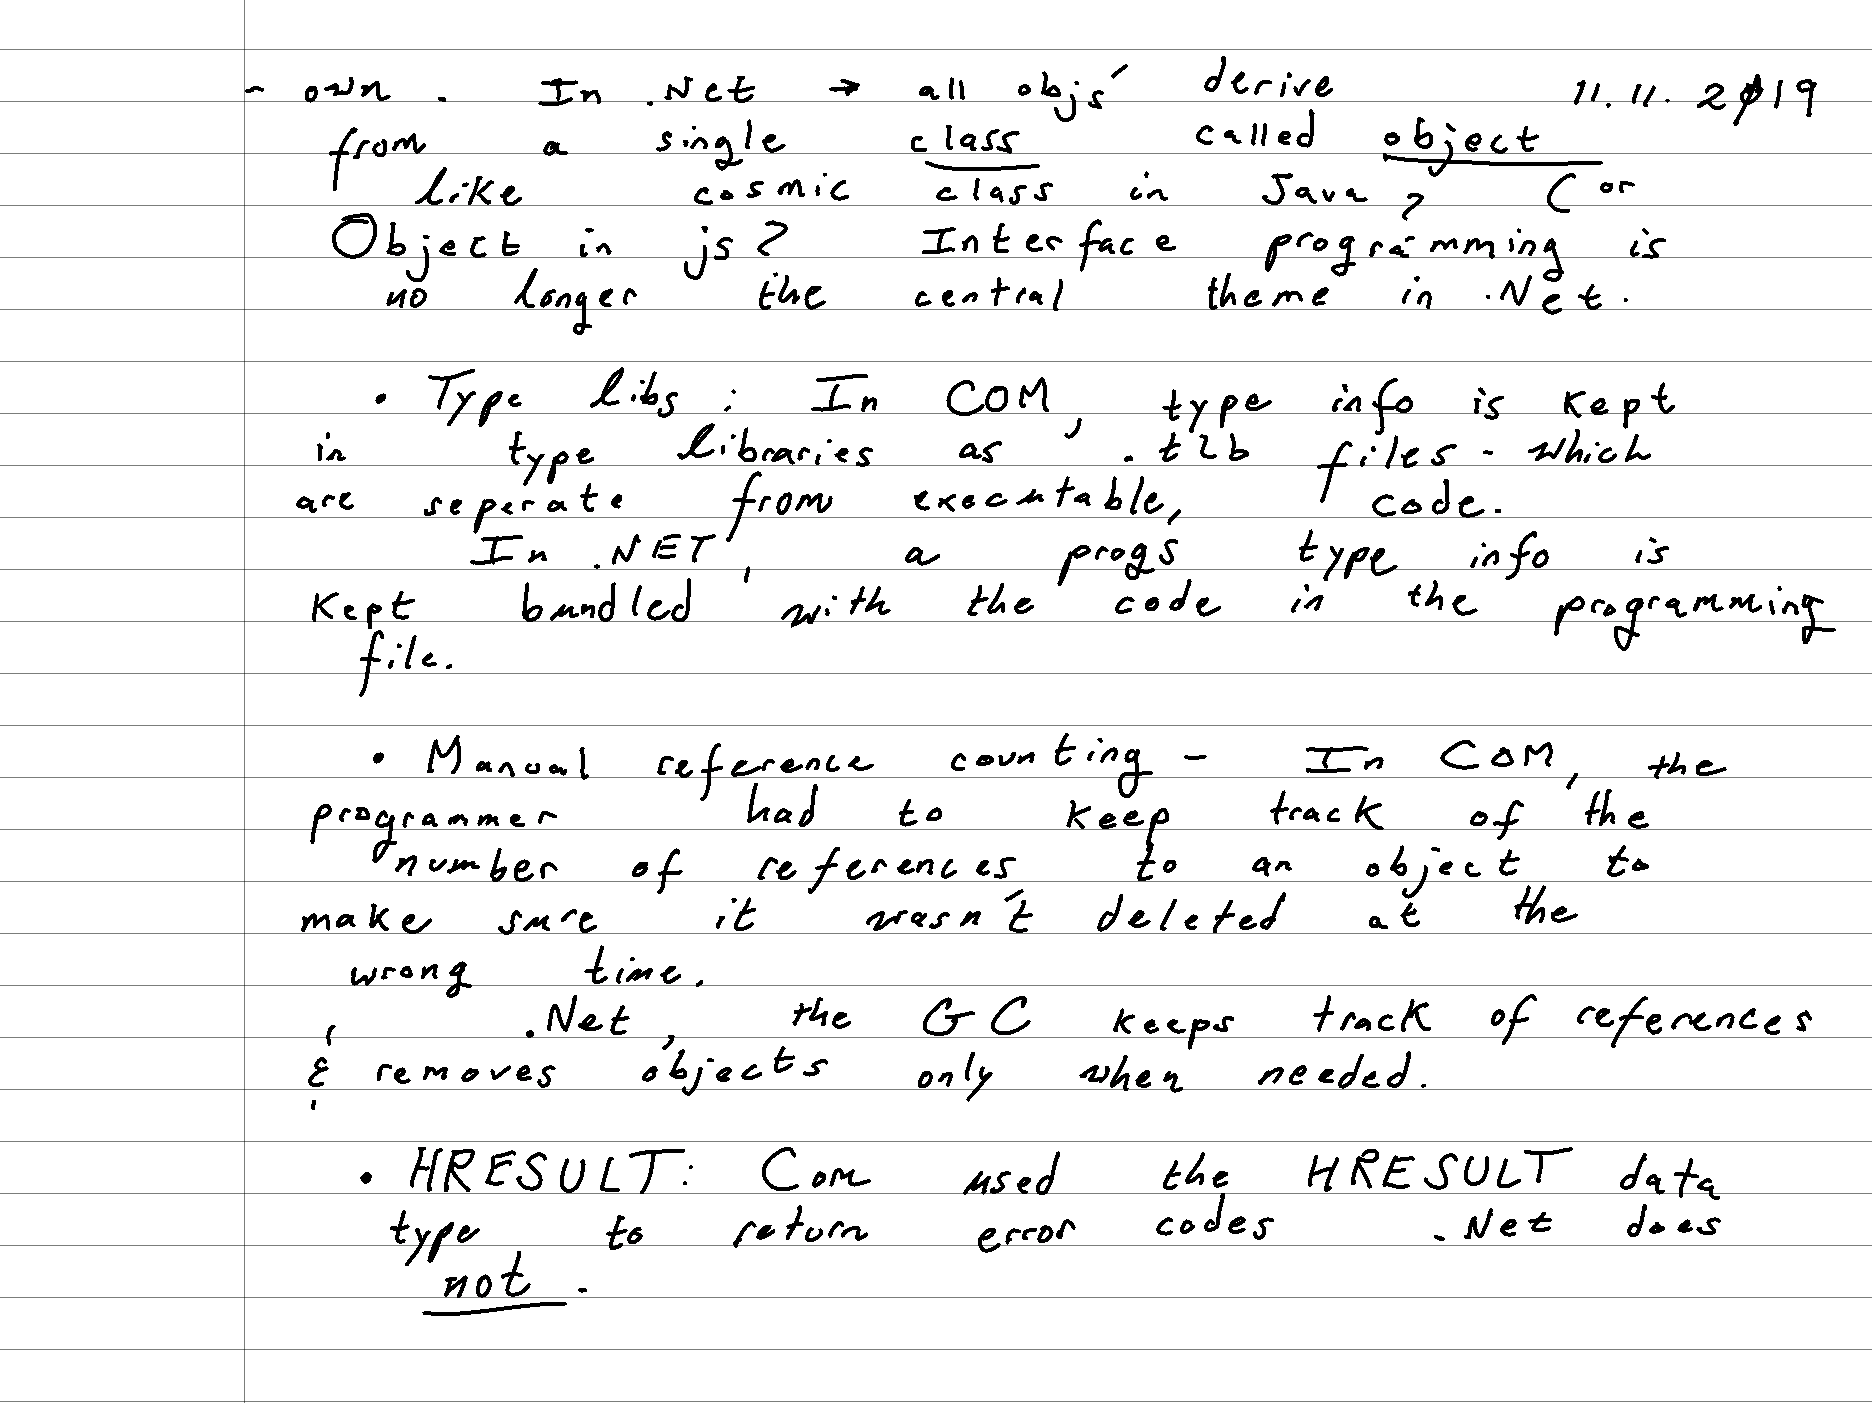 - own. In .Net → all objs' derive 11.11.2019
from a single class called object
like cosmic class in Java? (or
Object in js? Interface programming is
no longer the central theme in .Net.
• Type libs: In COM, type info is kept
in type libraries as .tlb files - which
are seperate from executable, code.
In .NET, a progs type info is
kept bundled with the code in the programming
file.
• Manual reference counting - In COM, the
programmer had to keep track of the
number of references to an object to
make sure it wasn't deleted at the
wrong time.
.Net, the GC keeps track of references
& removes objects only when needed.
• HRESULT: Com used the HRESULT data
type to return error codes .Net does
not.